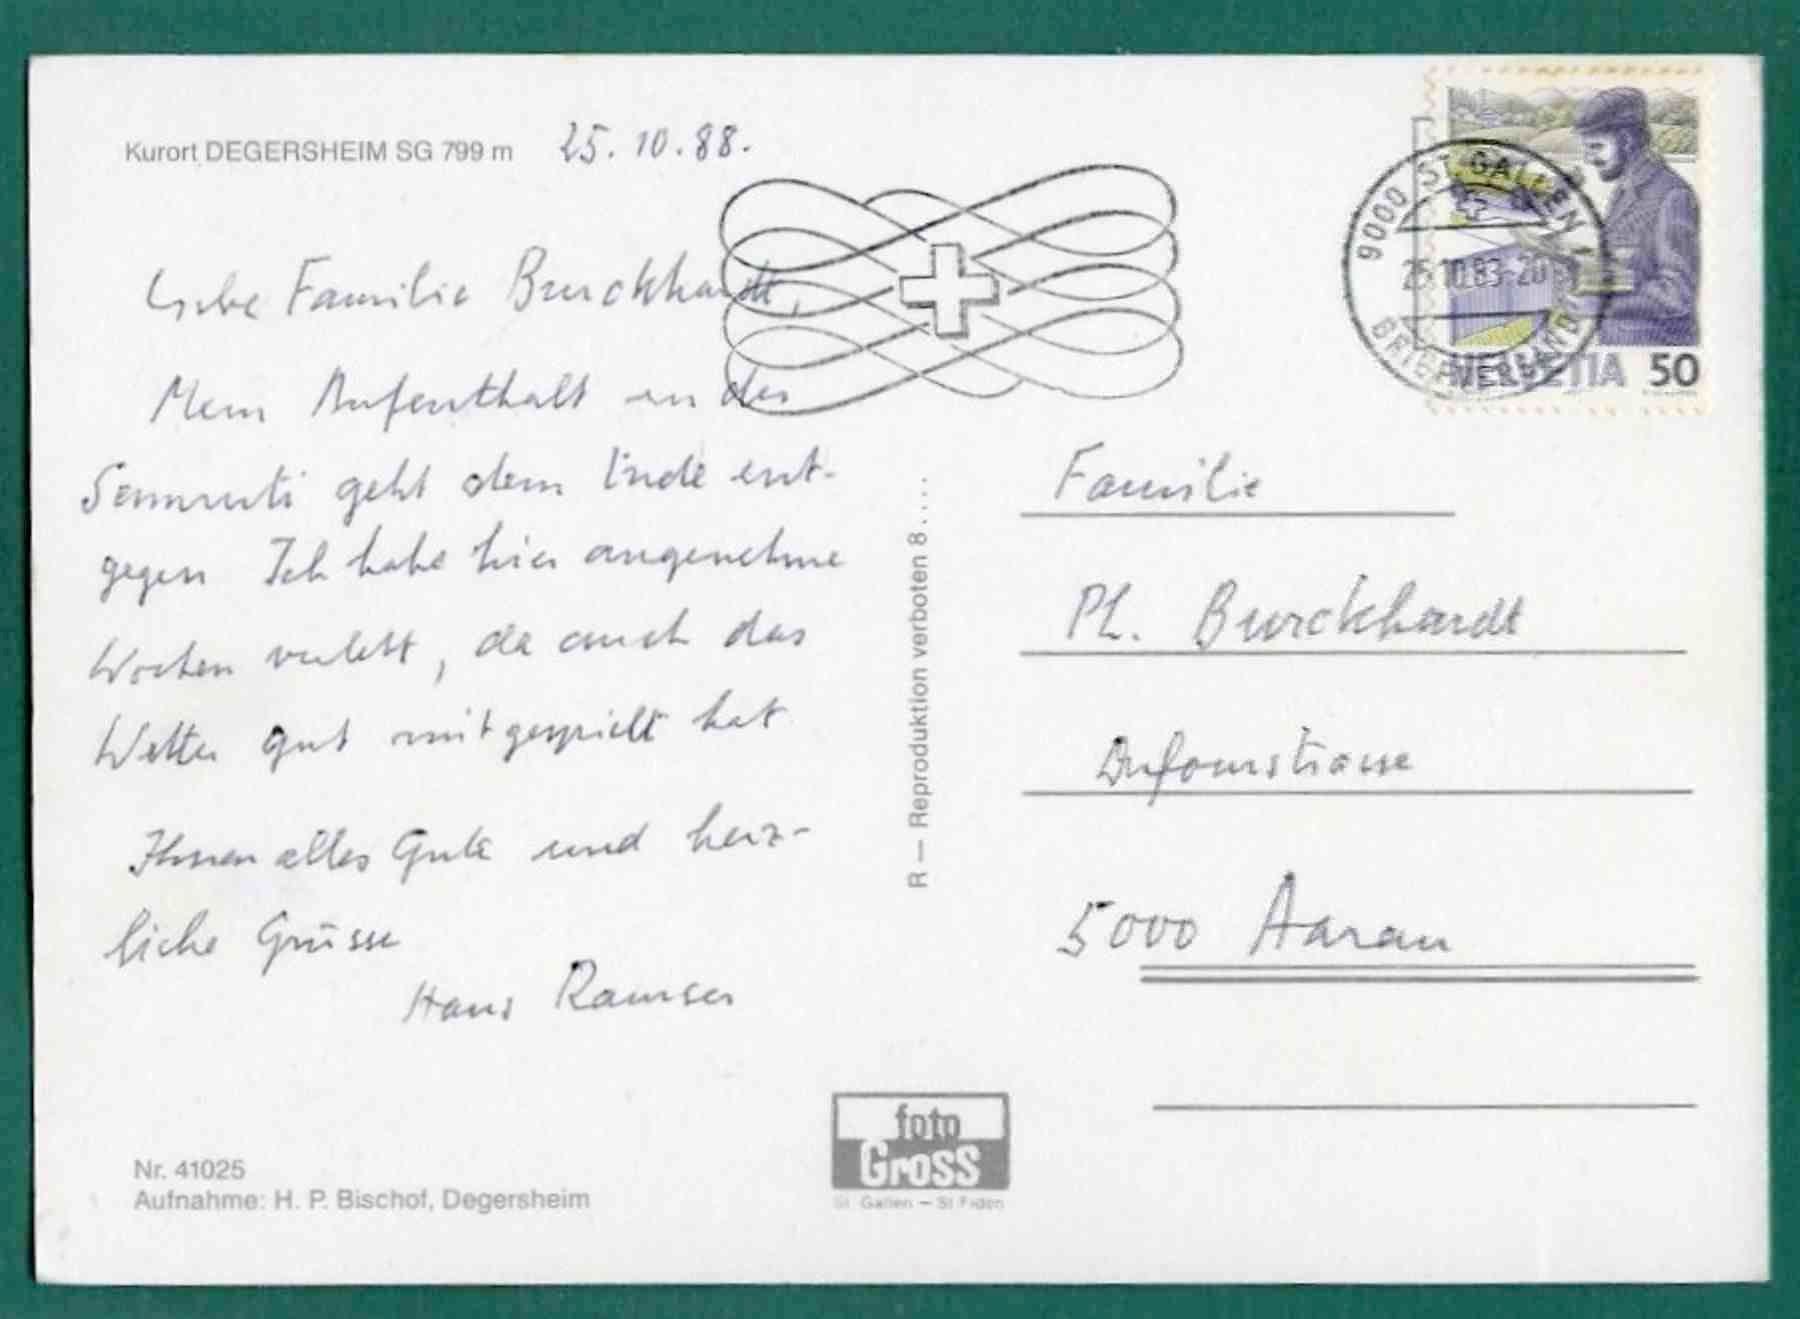 Kurort DEGERSHEIM SG 799 m
25.10.88.
Liebe Familie Burckhardt,
Mein Aufenthalt in der
Sennruti geht dem Ende ent-
gegen Ich habe hier angenehme
Wochen verlebt, da auch das
Wetter gut mitgespielt hat
Ihnen alles Gute und herz-
liche Grüsse
Hans Ramser
Nr. 41025
Aufnahme: H. P. Bischof, Degersheim
R — Reproduktion verboten 8....
foto
Gross
St. Gallen – St Fiden
9000 ST. GALLEN 1
25.10.88-20
BRIEFVERSAND
HELVETIA 50
Familie
Ph. Burckhardt
Dufourstrasse
5000 Aarau